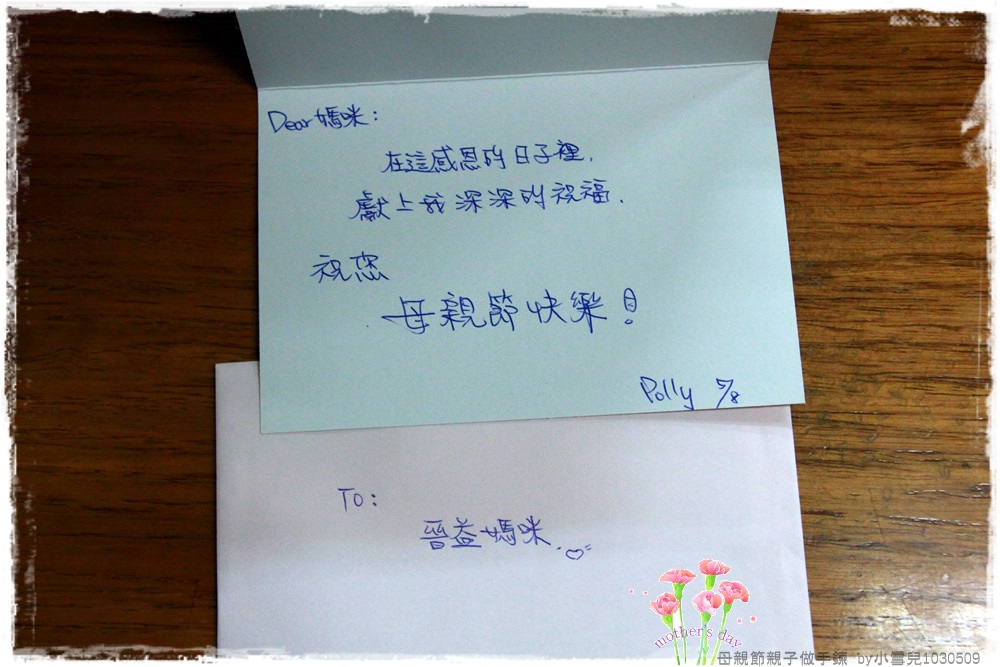 Dear 媽咪:
在這感恩的日子裡,
獻上我深深的祝福.
祝您
母親節快樂!
Polly 5/8
TO:
晉益媽咪
mother's day
母親節親子做手鍊 by小雪兒1030509